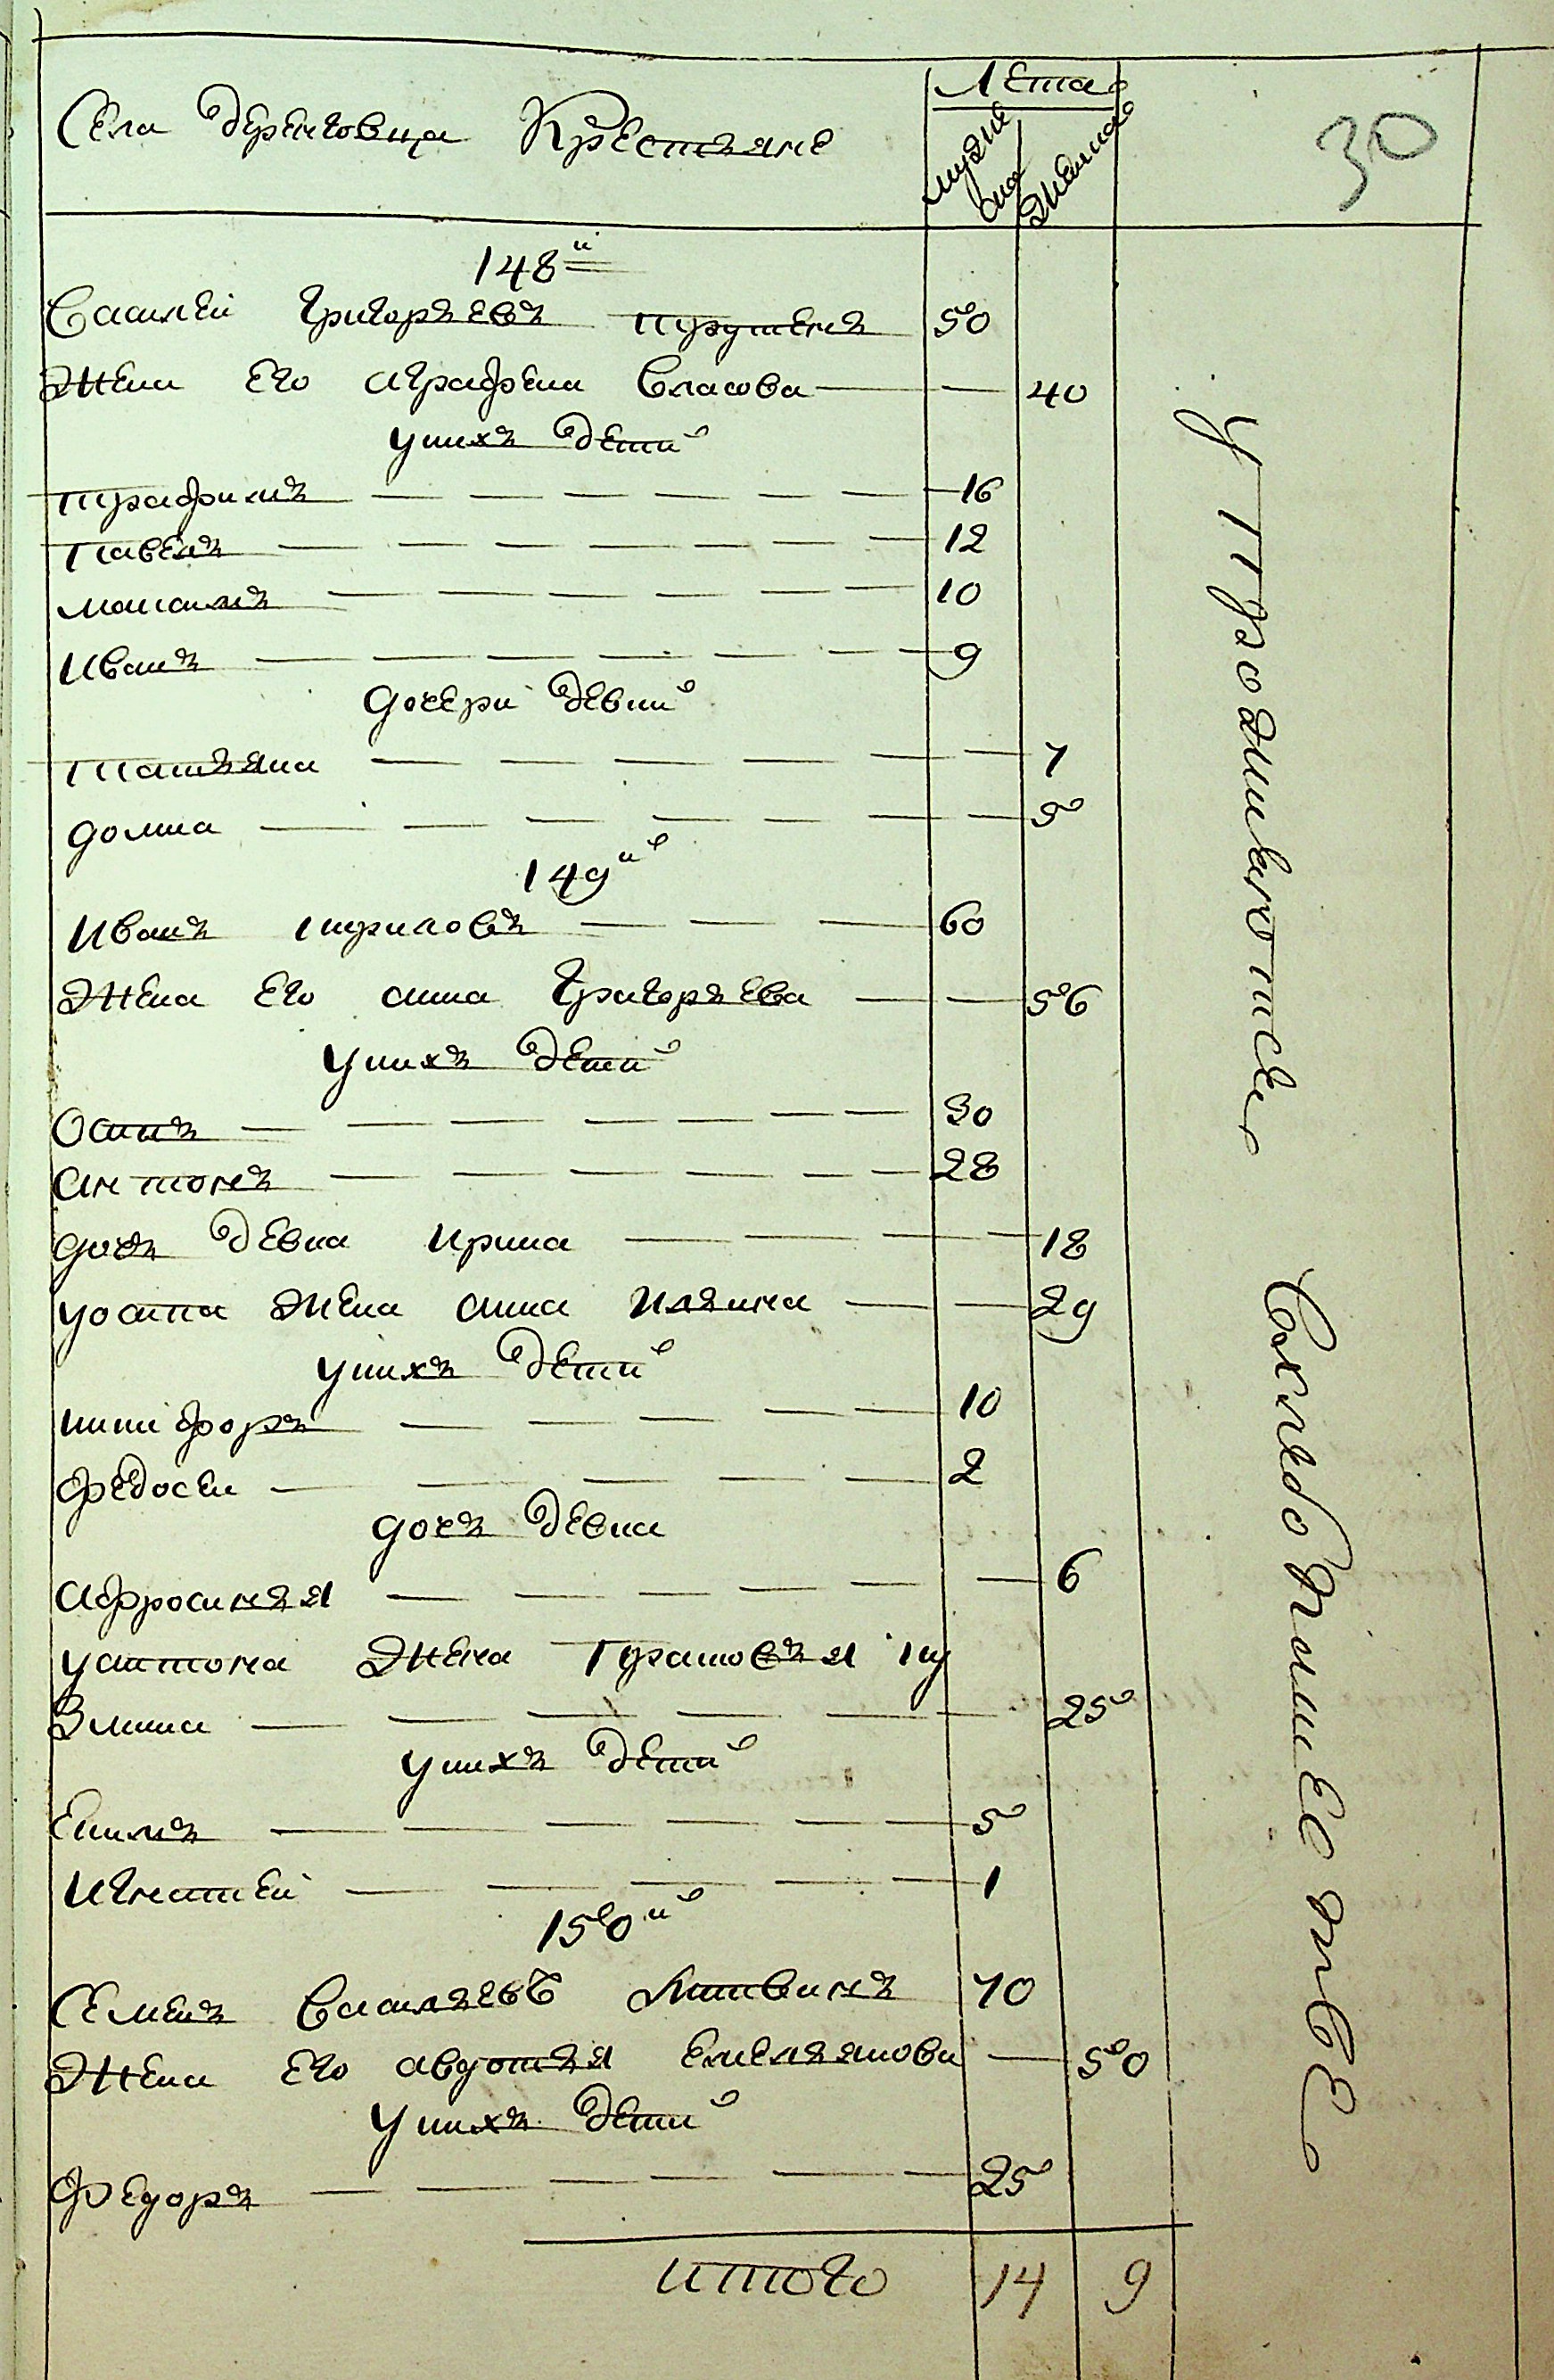 Села Деричовца Крестьяне
Лета
мужеска
женска
30
148й
Василей Григорьевъ
50
Жена Его аграфена Власова — — 40
Унихъ дети
трофимъ — 16
павелъ — 12
10
Иванъ — 9
дочери девки
татьяна — 7
домна — 5
149й
Иванъ кириловъ — 60
Жена Его анна Григорьева — — 56
Унихъ дети
Осипъ — 30
антонъ — 28
дочь девка ирина — 18
уосипа жена анна ильина — — 29
унихъ дети
никифоръ — 10
федосеи — 2
дочь девка
афросинья — 6
уантона жена Прасковья ку
змина — 25
унихъ дети
Ефимъ — 5
Игнатей — 1
150й
Семенъ Васильевъ Литвинъ 70
Жена Его авдотья Емельянова — 50
Унихъ дети
Федоръ — 25
итого 14 9